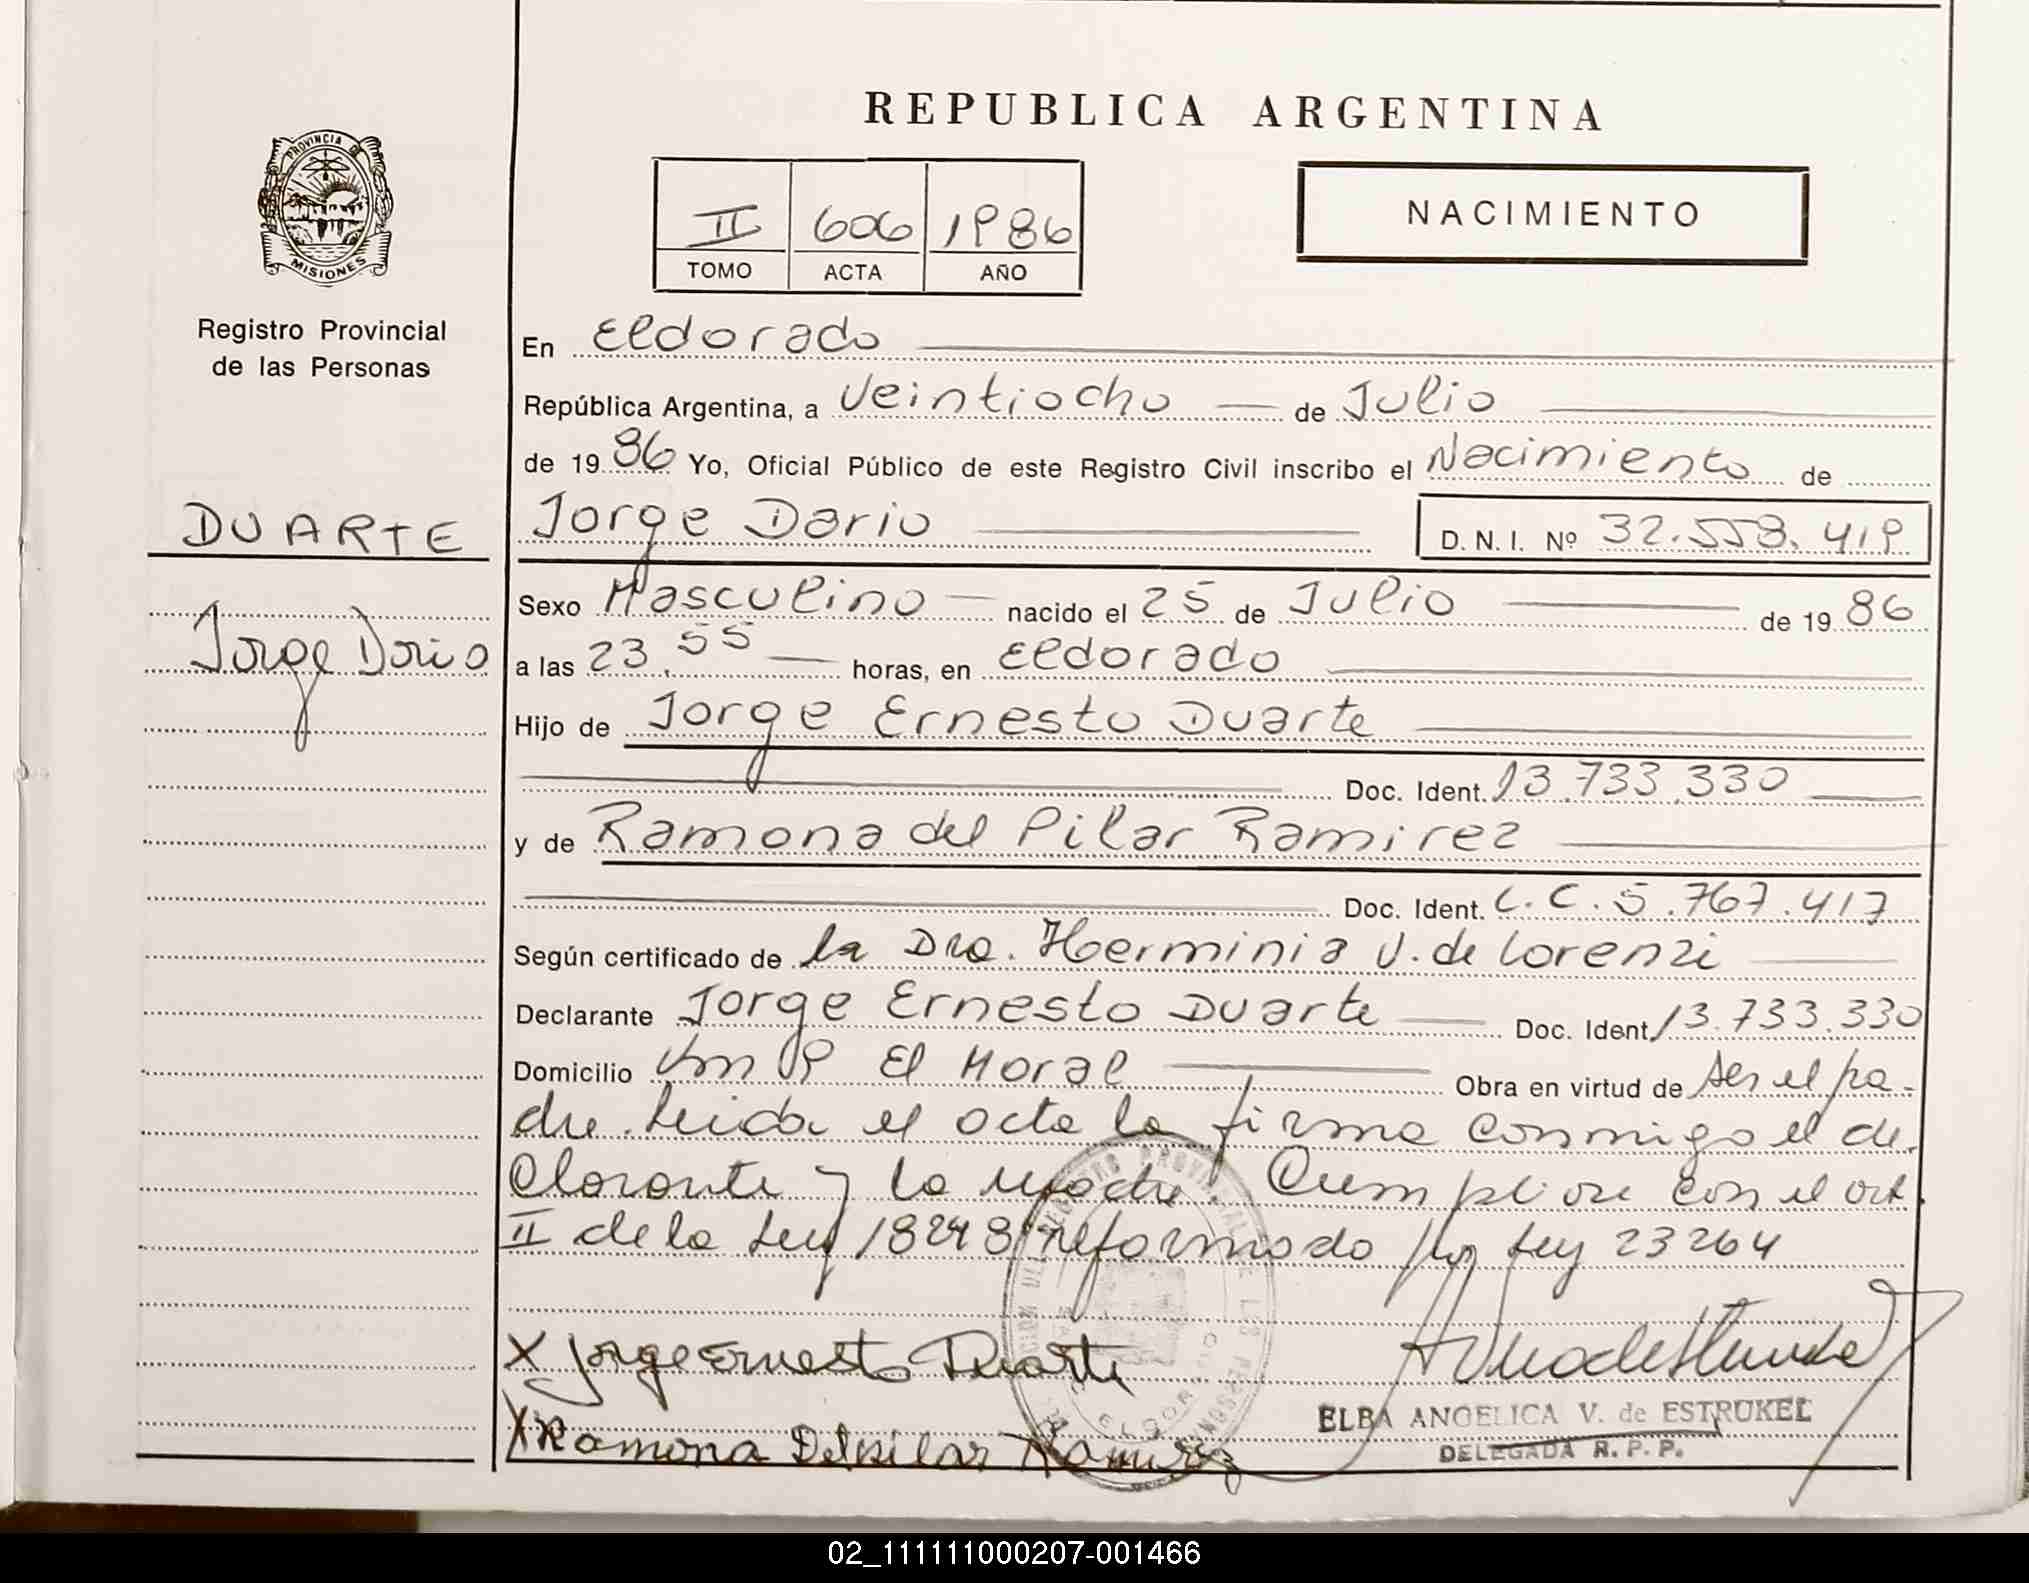 REPUBLICA ARGENTINA
PROVINCIA DE
MISIONES
Registro Provincial
de las Personas
II 606 1986
TOMO ACTA AÑO
NACIMIENTO
En Eldorado
República Argentina, a Veintiocho de Julio
de 1986 Yo, Oficial Público de este Registro Civil inscribo el Nacimiento de
DUARTE
Jorge Dario D.N.I. Nº 32.558.419
Jorge Dario
Sexo Masculino nacido el 25 de Julio de 1986
a las 23.55 horas, en Eldorado
Hijo de Jorge Ernesto Duarte
Doc. Ident. 13.733.330
y de Ramona del Pilar Ramirez
Doc. Ident. L.C. 5.767.417
Según certificado de la Dra. Herminia V. de Lorenzi
Declarante Jorge Ernesto Duarte Doc. Ident. 13.733.330
Domicilio Km 9 El Moral Obra en virtud de ser el pa-
dre. Leida el acta la firma conmigo el de-
clarante y la madre. Cumpliose con el art.
II de la Ley 18248 reformado por Ley 23264
X Jorge Ernesto Duarte
X Ramona Del Pilar Ramirez
ELBA ANGELICA V. de ESTRUKEL
DELEGADA R. P. P.
02_111111000207-001466